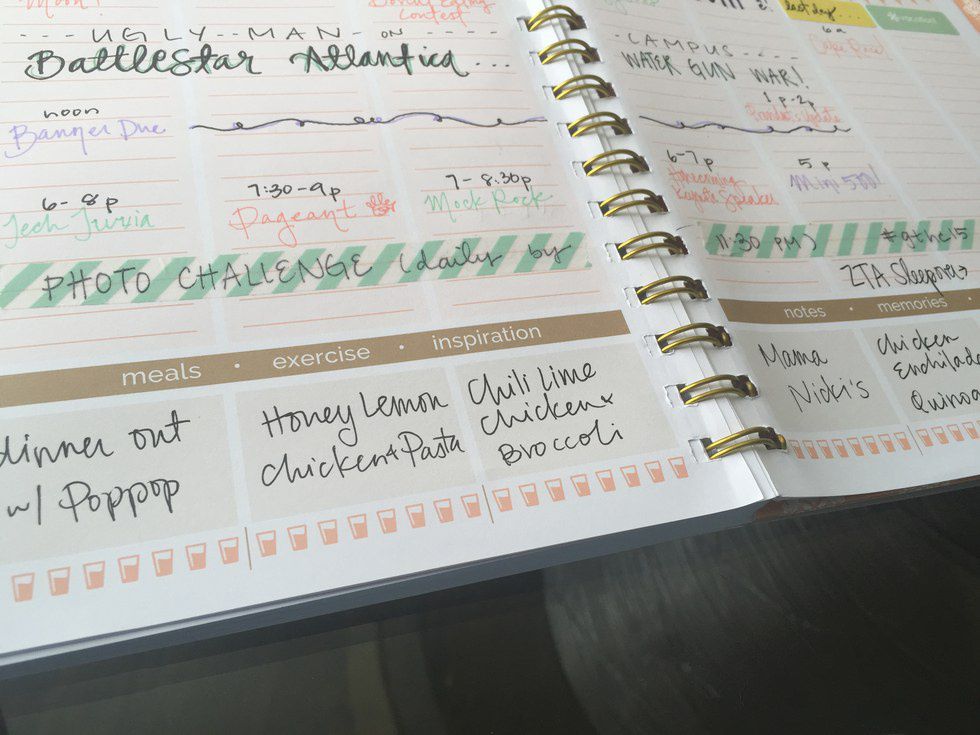 Moon!
Contest
- - - UGLY - - MAN - ON - - - -
Battlestar Atlantica ...
noon
Banner Due
6-8p
Tech
7:30-9p
Pageant
7-8:30p
Mock Rock
PHOTO CHALLENGE (daily by
meals • exercise • inspiration
dinner out
w/ Poppop
Honey Lemon
chicken + Pasta
Chili Lime
chicken +
Broccoli
last day...
- CAMPUS - - - -
WATER GUN WAR!
6a
1p-2p
6-7p
Homecoming
Keynote Speaker
5p
Mini 500!
11:30 PM)
ZTA Sleepover
notes • memories •
Mama
Nicki's
Chicken
Enchilada
Quinoa